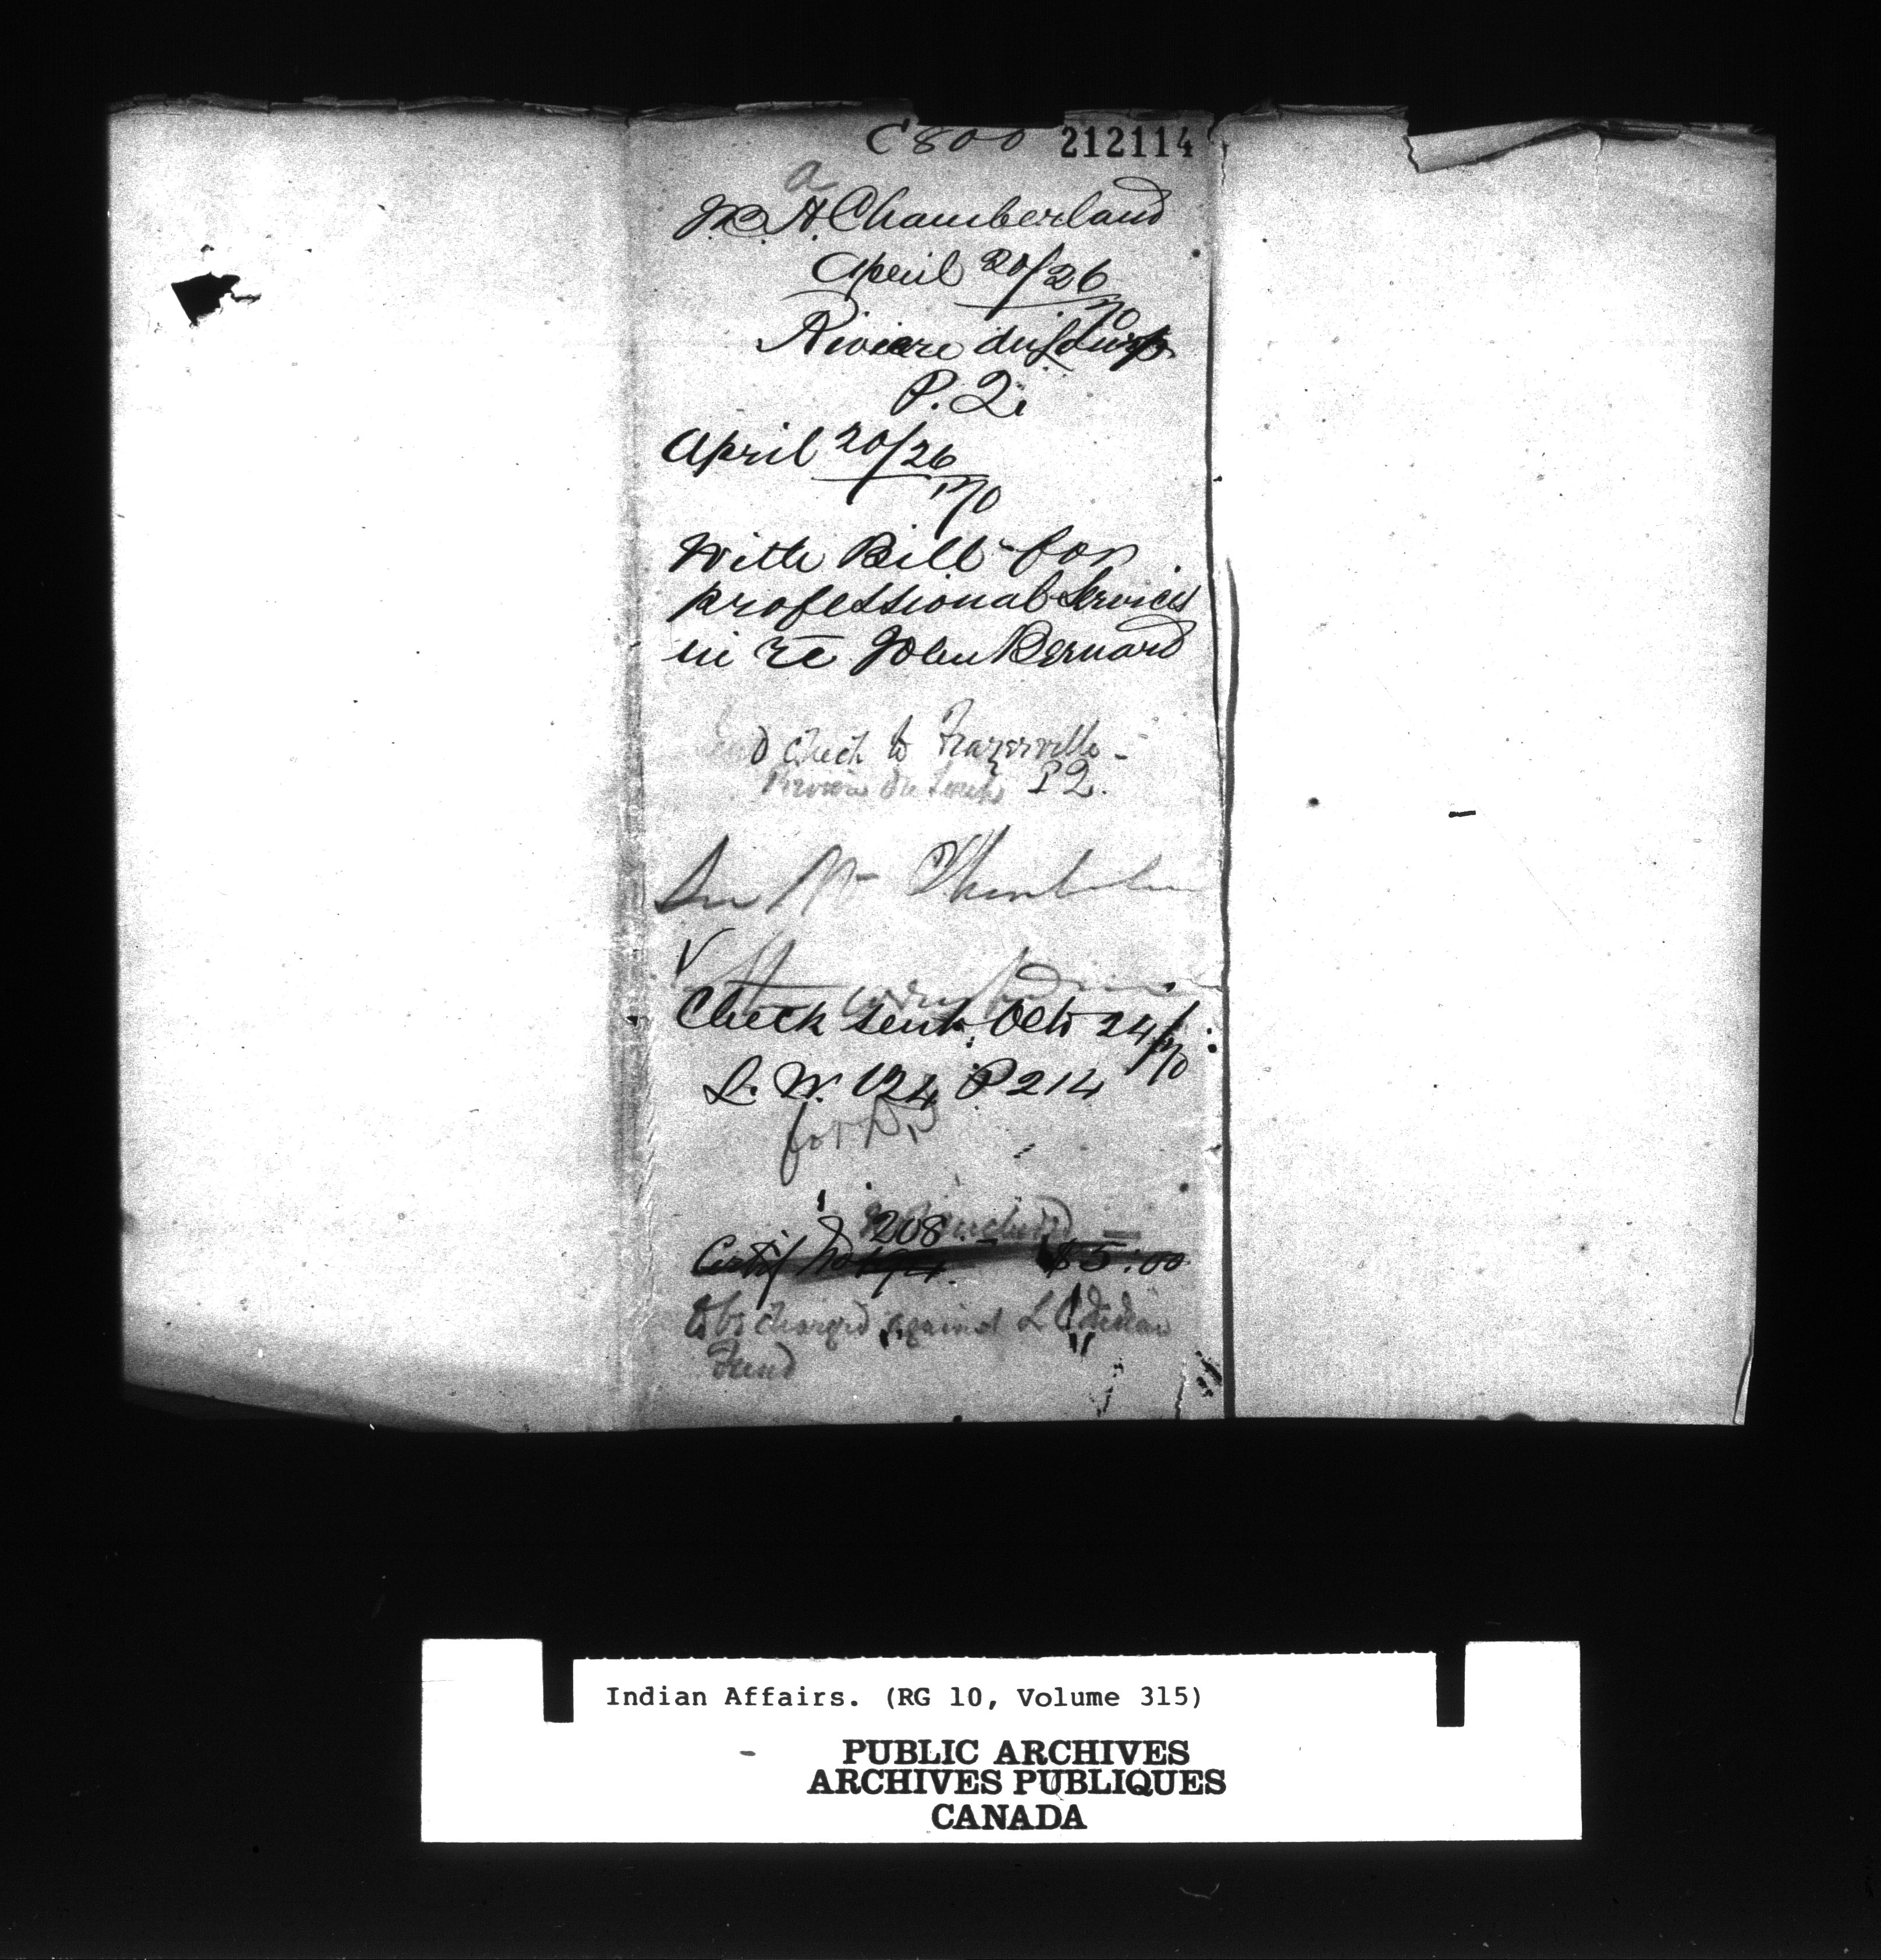 C 800 212114
a
J.B. A. Chamberland
April 20/26
70
Riviere du Loup
P. Q.
April 20/26
70
With Bill for
professional Services
in re John Bernard
Send check to Frazerville -
Riviere du Loup P Q.
V
Check sent Oct 24/70
L. W. 124 P 214
for
208
Certif No $5.00
to be charged against L C Indian
Fund
Indian Affairs. (RG 10, Volume 315)
PUBLIC ARCHIVES
ARCHIVES PUBLIQUES
CANADA